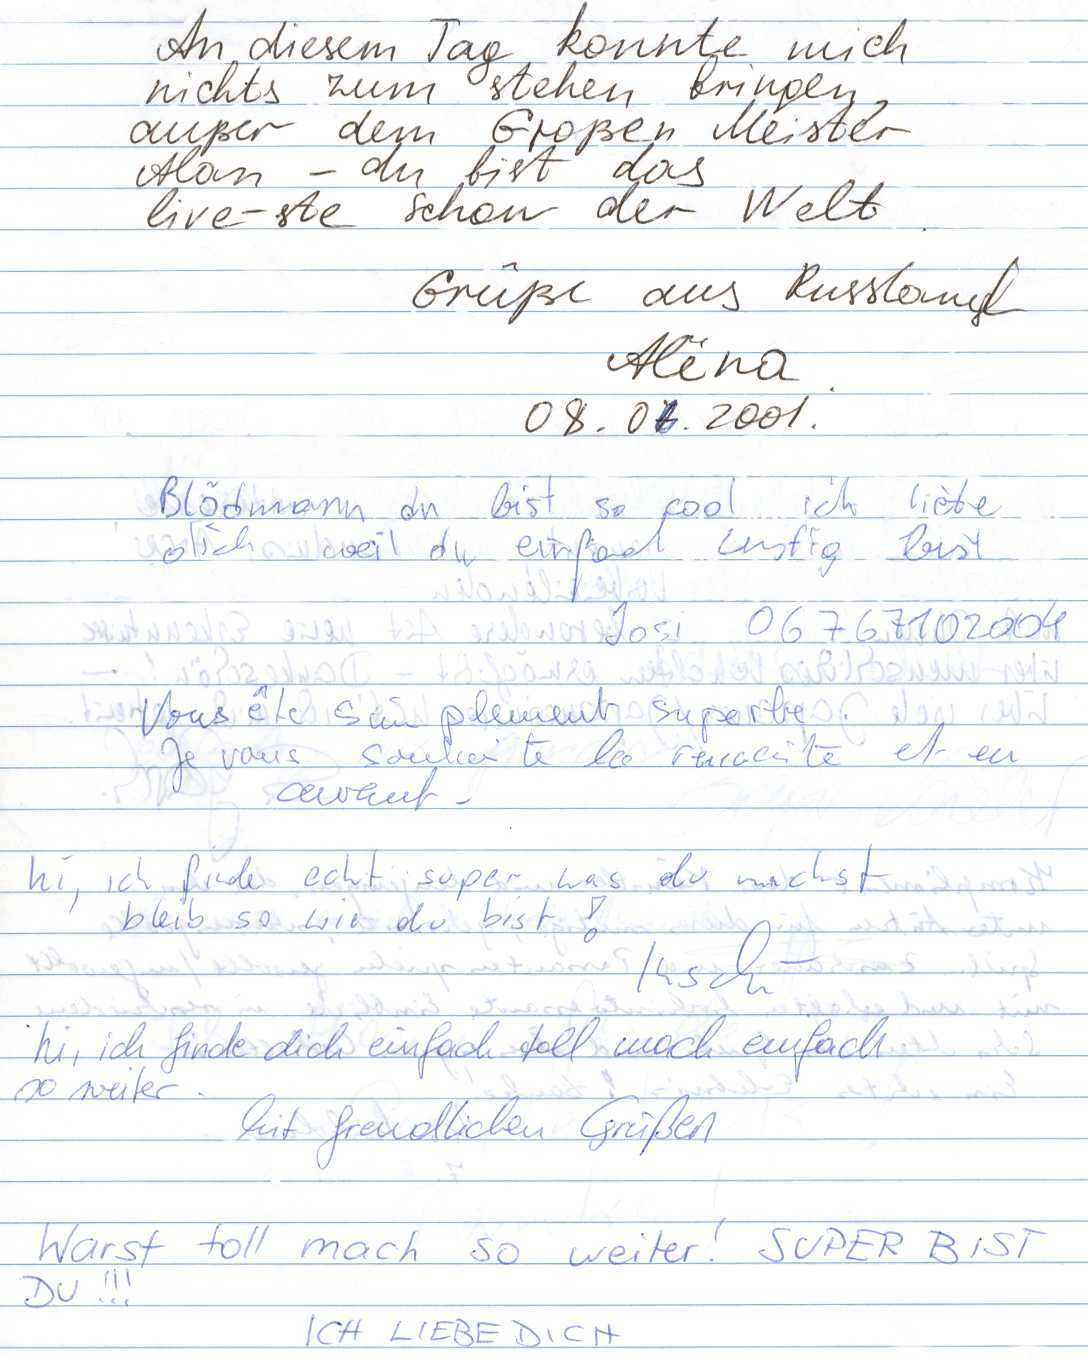 An diesem Tag konnte mich
nichts zum stehen bringen
außer dem Großen Meister
Alan – du bist das
live-ste Schow der Welt.
Grüße aus Russland
Alëna.
08.07.2001.
Blödmann du bist so cool ich liebe
dich weil du einfach lustig bist
Josi 06767102004
Vous ête simplement superbe.
Je vous souhaite la reussite et en
avant.
hi, ich finde echt super was du machst
bleib so wie du bist!
hi, ich finde dich einfach toll mach einfach
so weiter.
Mit freundlichen Grüßen
Warst toll mach so weiter! SUPER BIST
DU!!!
ICH LIEBE DICH